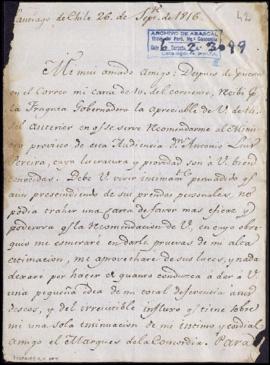 Santiago de Chile 26. de Sepre. de 1816.
42
ARCHIVO DE ABASCAL
2
Mi muy amado Amigo: Despues de puesta
en el Correo mi carta de 10. del corriente, recibi p.r
la Fragata Gobernadora la apreciable de V. de 14.
del anterior en q.e se sirve recomendarme al Minis
tro provisto de esta Audiencia Dn. Antonio Luis
Pereira, cuya literatura y providad son á V. bien
conocidas. Debe V. vivir intimamte. persuadido q.e
aun prescindiendo de sus prendas personales, no
podia traher una Carta de favor mas eficaz y
poderosa q.e la recomendacion de V., en cuyo obse
quio me esmeraré en darle pruevas de mi alta
estimacion, me aprovecharé de sus luces, y nada
dexaré por hacer de quanto conduzca á dar á V.
una pequeña idea de mi cordial deferencia á sus
deseos, y del irresistible influxo q.e tiene sobre
mi una sola insinuacion de mi intimo y cordial
amigo el Marques de la Concordia. Para